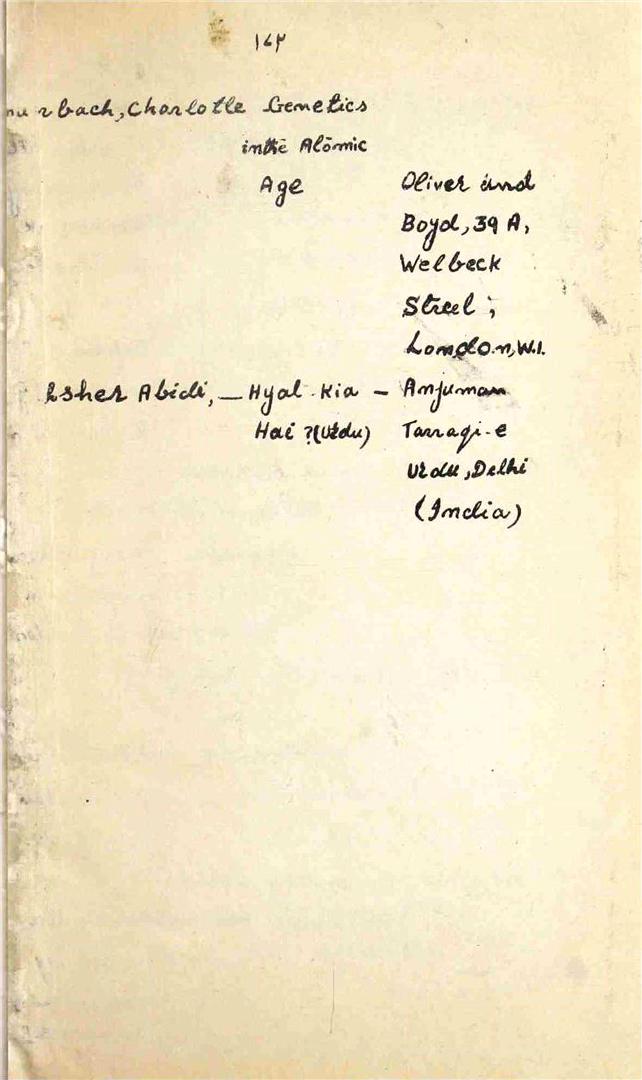 ۱۶۳
urbach, Charlotte Genetics
in the Atomic
Age Oliver and
Boyd, 39 A,
Welbeck
Street ;
London, W.1.
Esher Abidi, — Hyat Kia – Anjuman
Hai ? (Urdu) Tarraqi-e
Urdu, Delhi
(India)